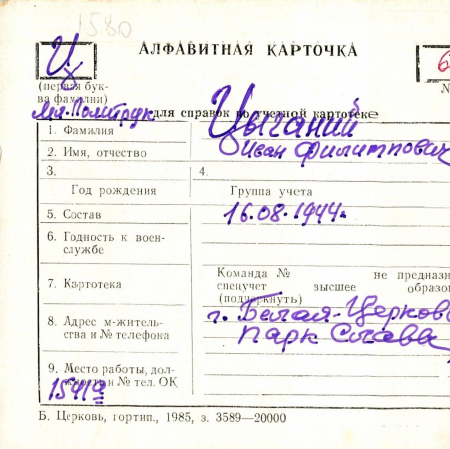 1580
АЛФАВИТНАЯ КАРТОЧКА
Ц
6
(первая бук-
ва фамилии)
№
Мл. Политрук
для справок по учетной картотеке
1. Фамилия Цыганий
2. Имя, отчество Иван Филиппович
3. 4.
Год рождения Группа учета
5. Состав 16.08.1944г.
6. Годность к воен-
службе
7. Картотека
Команда № не предназн
спецучет высшее образо
(подчеркнуть)
8. Адрес м-житель-
ства и № телефона
г. Белая-Церков
Парк Славы
9. Место работы, дол-
жность и № тел. ОК
Б. Церковь, гортип., 1985, з. 3589—20000